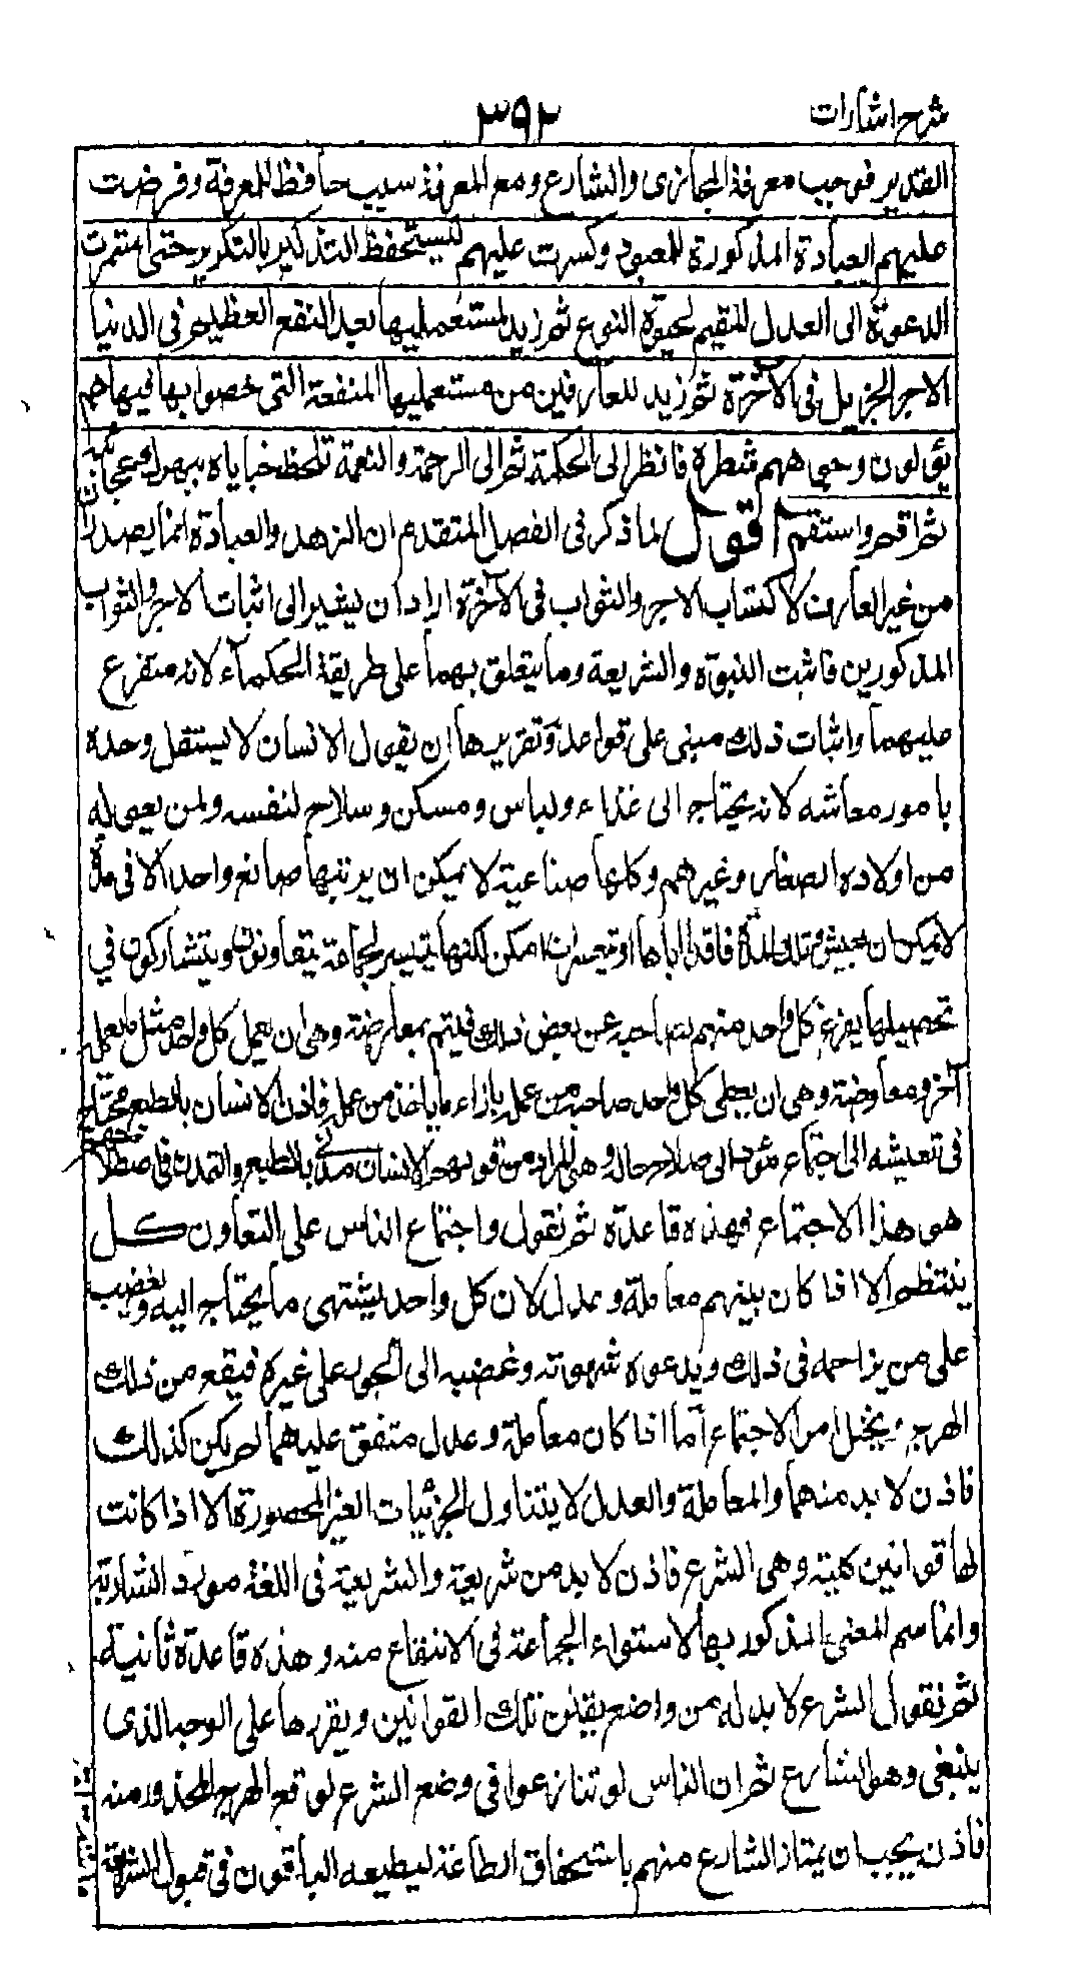 شرح اشارات
٣٩٢
القدير فوجب معرفة المجازى والشارع ومع المعرفة سبب حافظ للمعرفة وفرضت
عليهم العبادة المذكورة للمعبود وكررت عليهم ليستحفظ التذكير بالتكرير حتى استمرت
الدعوة الى العدل المقيم لحيوة النوع ثم زيد لمستعمليها بعد النفع العظيم فى الدنيا
الاجر الجزيل فى الآخرة ثم زيد للعارفين من مستعمليها المنفعة التى خصوا بها فيما هم
يولون وجوههم شطره فانظر الى الحكمة ثم الى الرحمة والنعمة تلحظ جنابا يبهرك عجائبه
ثم اقم واستقم اقول لما ذكر فى الفصل المتقدم ان الزهد والعبادة انما يصدران
من غير العارف لاكتساب الاجر والثواب فى الآخرة اراد ان يشير الى اثبات الاجر والثواب
المذكورين فاثبت النبوة والشريعة وما يتعلق بهما على طريقة الحكمآء لانه متفرع
عليهما واثبات ذلك مبنى على قواعد وتقريرها ان يقول الانسان لا يستقل وحده
بامور معاشه لانه يحتاج الى غذاء ولباس ومسكن وسلاح لنفسه ولمن يعوله
من اولاده الصغار وغيرهم وكلها صناعية لا يمكن ان يرتبها صانع واحد الا فى مدة
لا يمكن ان يعيش تلك المدة فاقدا اياها او يتعسر ان امكن لكنها تتيسر لجماعة يتعاونون ويتشاركون في
تحصيلها يفرغ كل واحد منهم لصاحبه عن بعض ذلك فيتم بمعارضة وهى ان يعمل كل واحد مثل ما يعمله
آخر ومعاوضة وهى ان يعطى كل واحد صاحبه من عمله بازاء ما ياخذه من عمله فاذن الانسان بالطبع محتاج
فى تعيشه الى اجتماع مؤد الى صلاح حاله وهو المراد من قولهم الانسان مدنى بالطبع والتمدن فى اصطلاحهم
هو هذا الاجتماع فهذه قاعدة ثم نقول واجتماع الناس على التعاون لا
ينتظم الا اذا كان بينهم معاملة وعدل لان كل واحد يشتهى ما يحتاج اليه ويغضب
على من يزاحمه فى ذلك ويدعوه شهوته وغضبه الى الجور على غيره فيقع من ذلك
الهرج ويختل امر الاجتماع اما اذا كان معاملة وعدل متفق عليهما لم يكن كذلك
فاذن لا بد منهما والمعاملة والعدل لا يتناول الجزئيات الغير المحصورة الا اذا كانت
لها قوانين كلية وهى الشرع فاذن لا بد من شريعة والشريعة فى اللغة مورد الشاربة
وانما سم المعنى المذكور بها لاستواء الجماعة فى الانتفاع منه وهذه قاعدة ثانية
ثم نقول الشرع لا بد له من واضع يقنن تلك القوانين ويقررها على الوجه الذى
ينبغى وهو الشارع ثم ان الناس لو تنازعوا فى وضع الشرع لوقع الهرج المحذور منه
فاذن يجب ان يمتاز الشارع منهم باستحقاق الطاعة ليطيعه الباقون فى قبول الشريعة